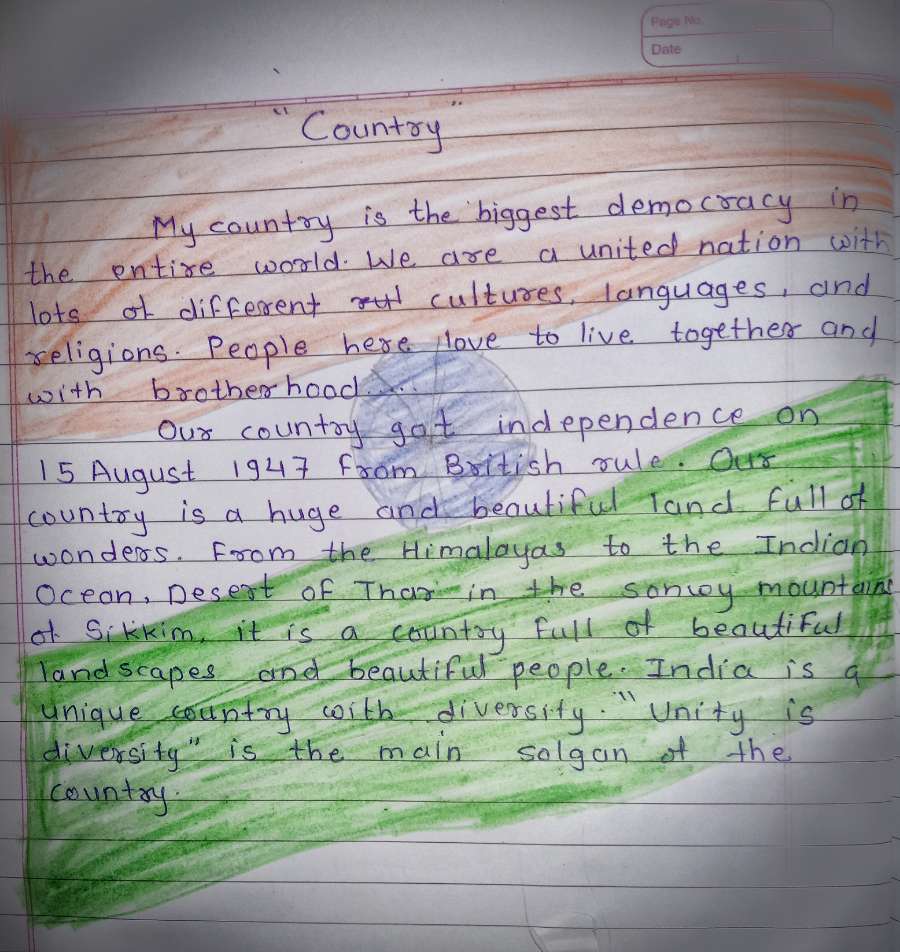 Page No.
Date
"Country"
My country is the biggest democracy in
the entire world. We are a united nation with
lots of different cultures, languages, and
religions. People here love to live together and
with brotherhood....
Our country got independence on
15 August 1947 from British rule. Our
country is a huge and beautiful land full of
wonders. From the Himalayas to the Indian
Ocean, Desert of Thar in the sonwoy mountains
of Sikkim, it is a country full of beautiful
landscapes and beautiful people. India is a
unique country with diversity. "Unity is
diversity" is the main solgan of the
country.